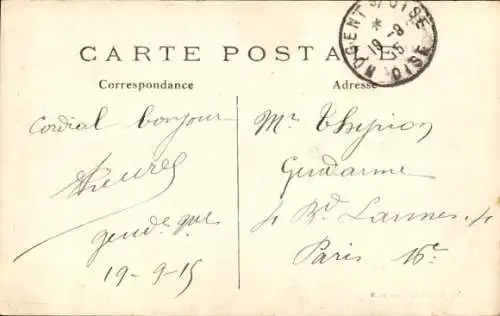 NOGENT S/OISE
* 
19 - 9
15
OISE
CARTE POSTALE
Correspondance
Adresse
Cordial bonjour
gend. que
19-9-15
Mr
Gendarme
4 Bd Lannes, 4
Paris 16e